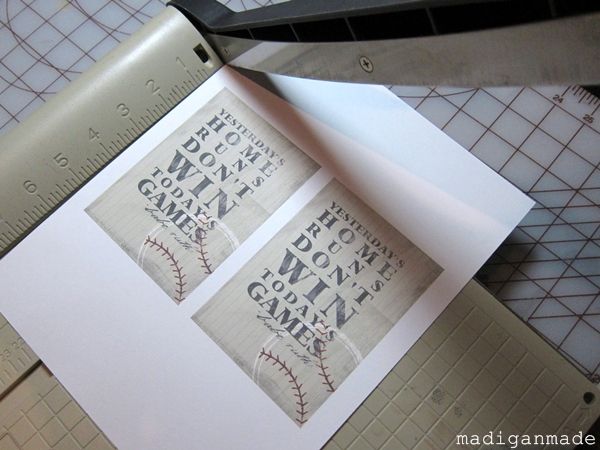 YESTERDAY'S
HOME
RUNS
DON'T
WIN
TODAY'S
GAMES
babe ruth
YESTERDAY'S
HOME
RUNS
DON'T
WIN
TODAY'S
GAMES
babe ruth
1
2
3
4
5
6
24
25
madiganmade